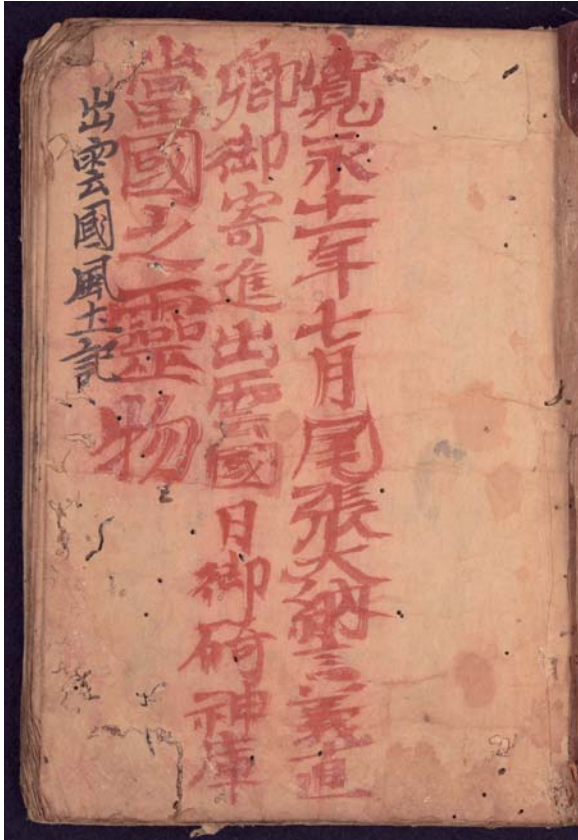 寛永十一年七月尾張大納言義直
卿御寄進出雲國日御碕神庫
當國之靈物
出雲國風土記